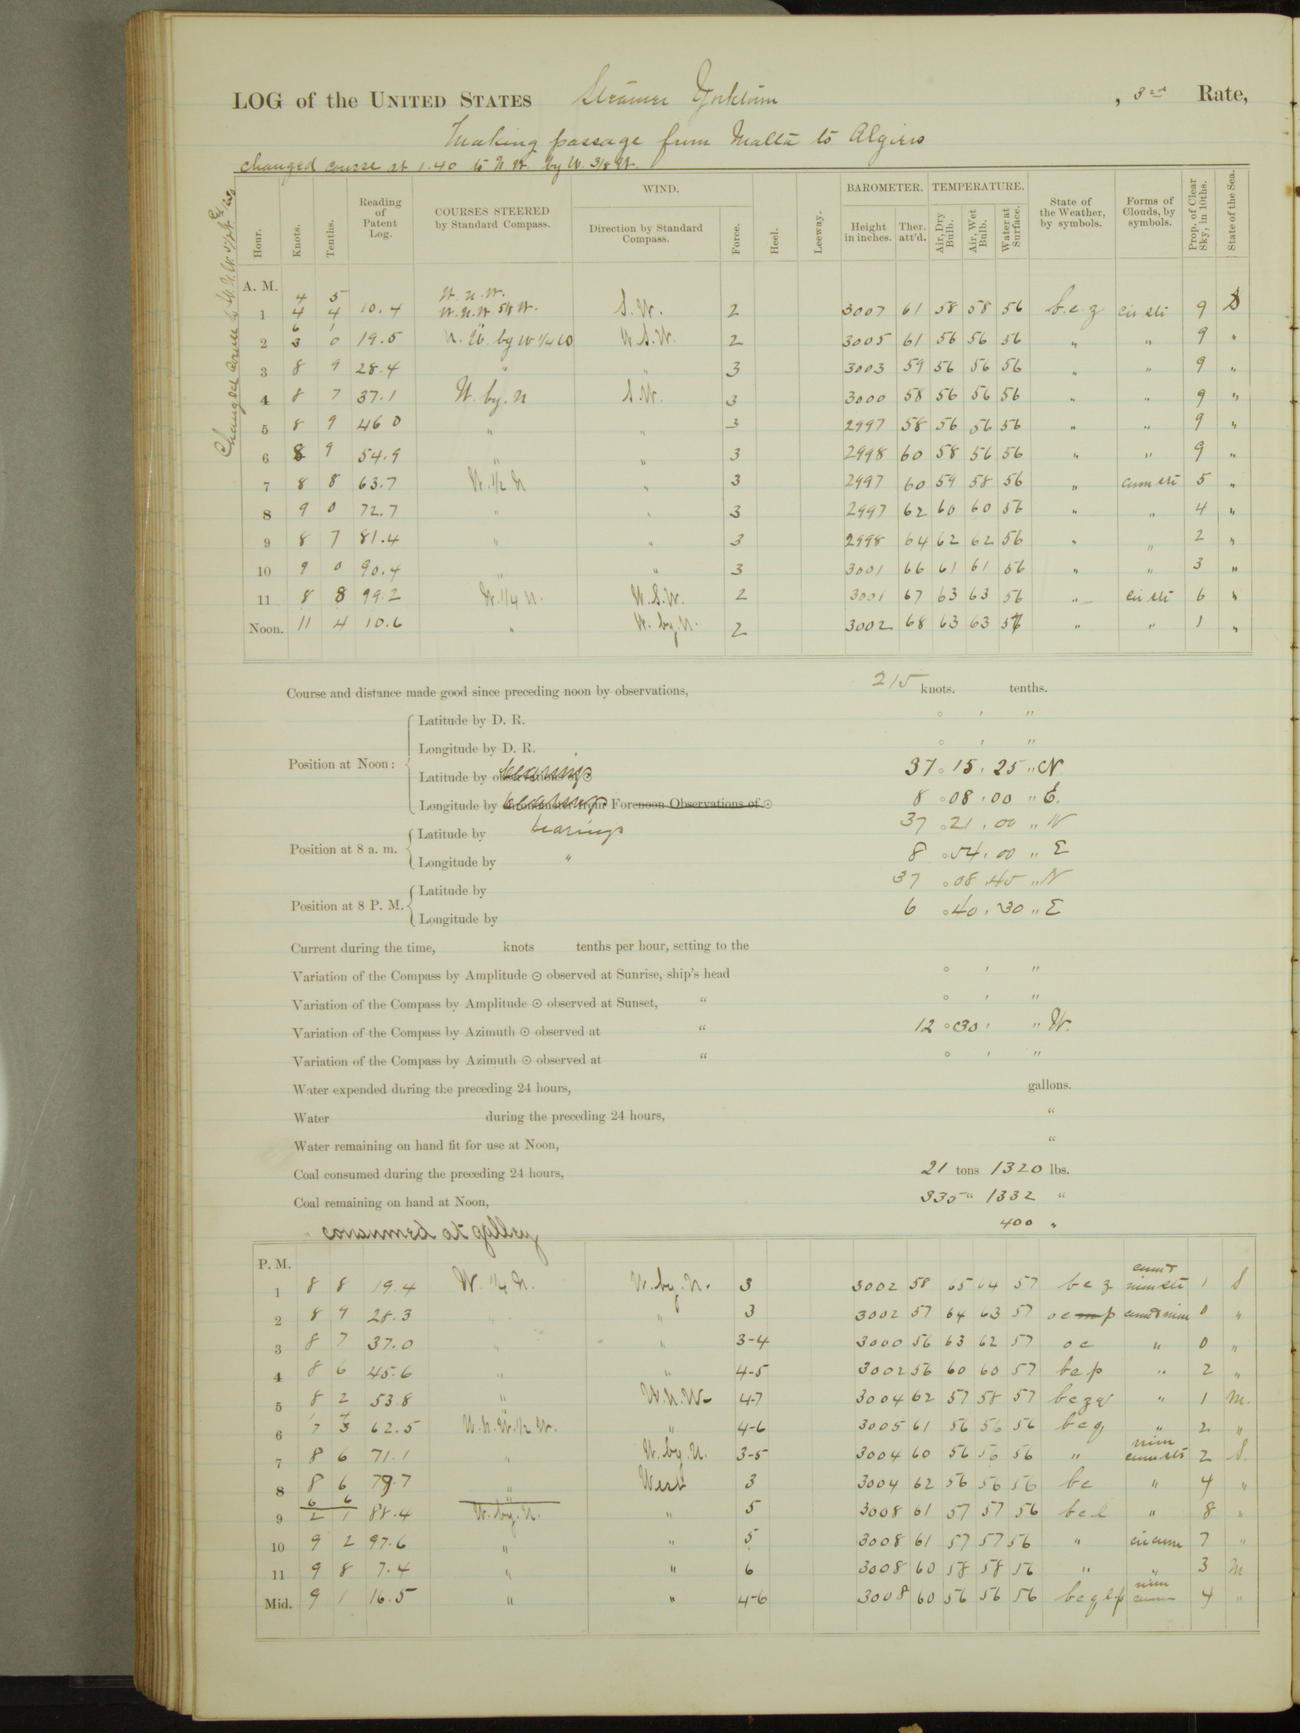 LOG of the UNITED STATES Steamer Yorktown, 3rd Rate,
Making passage from Malta to Algiers
changed course at 1.40 to N.W. by W. 3/8 W.
WIND. BAROMETER. TEMPERATURE.
Hour. Knots. Tenths. Reading of Patent Log. COURSES STEERED by Standard Compass. Direction by Standard Compass. Force. Heel. Leeway. Height in inches. Ther. att'd. Air, Dry Bulb. Air, Wet Bulb. Water at Surface. State of the Weather, by symbols. Forms of Clouds, by symbols. Prop. of Clear Sky, in 10ths. State of the Sea.
A. M.
4 5 W.N.W.
1 4 4 10.4 W.N.W. 5/8 W. S.W. 2 3007 61 58 58 56 b.c z cir str 9 S
6 1
2 3 0 19.5 N.W. by W 1/4 W W.S.W. 2 3005 61 56 56 56 " " 9 "
3 8 9 28.4 " " 3 3003 59 56 56 56 " " 9 "
4 8 7 37.1 W. by. N S.W. 3 3000 58 56 56 56 " " 9 "
5 8 9 46 0 " " 3 2997 58 56 56 56 " " 9 "
6 8 9 54.9 " " 3 2998 60 58 56 56 " " 9 "
7 8 8 63.7 W. 1/2 N " 3 2997 60 59 58 56 " cum str 5 "
8 9 0 72.7 " " 3 2997 62 60 60 56 " " 4 "
9 8 7 81.4 " " 3 2998 64 62 62 56 " " 2 "
10 9 0 90.4 " " 3 3001 66 61 61 56 " " 3 "
11 8 8 99.2 W. 1/4 N. W.S.W. 2 3001 67 63 63 56 " cir str 6 "
Noon. 11 4 10.6 " W. by. N. 2 3002 68 63 63 56 " " 1 "
Course and distance made good since preceding noon by observations, 215 knots. tenths.
Latitude by D. R. ° ′ ″
Longitude by D. R. ° ′ ″
Position at Noon:
Latitude by observations of ☉ bearings 37 ° 15 ′ 25 ″ N
Longitude by bearings Forenoon Observations of ☉ 8 ° 08 ′ 00 ″ E.
Position at 8 a. m. Latitude by bearings 37 ° 21 ′ 00 ″ N
Longitude by " 8 ° 54 ′ 00 ″ E
Position at 8 P. M. Latitude by 37 ° 08 ′ 45 ″ N
Longitude by 6 ° 40 ′ 30 ″ E
Current during the time, knots tenths per hour, setting to the
Variation of the Compass by Amplitude ☉ observed at Sunrise, ship's head ° ′ ″
Variation of the Compass by Amplitude ☉ observed at Sunset, " ° ′ ″
Variation of the Compass by Azimuth ☉ observed at " 12 ° 30 ′ ″ W.
Variation of the Compass by Azimuth ☉ observed at " ° ′ ″
Water expended during the preceding 24 hours, gallons.
Water during the preceding 24 hours, "
Water remaining on hand fit for use at Noon, "
Coal consumed during the preceding 24 hours, 21 tons 1320 lbs.
Coal remaining on hand at Noon, 335 " 1332 "
consumed at galley 400 "
P. M.
1 8 8 19.4 W 1/4 N. W. by. N. 3 3002 58 65 64 57 b c z cum & nim str 1 S
2 8 9 28.3 " " 3 3002 57 64 63 57 o c p cum & nim 0 "
3 8 7 37.0 " " 3-4 3000 56 63 62 57 o c " 0 "
4 8 6 45.6 " " 4-5 3002 56 60 60 57 b c p " 2 "
5 8 2 53.8 " W.N.W. 4-7 3004 62 57 58 57 " 1 M.
6 7 3 62.5 W.N.W. 1/2 W. " 4-6 3005 61 56 56 56 b c q " 2 "
7 8 6 71.1 " W. by. N. 3-5 3004 60 56 56 56 " nim cum str 2 S.
8 8 6 79.7 " West 3 3004 62 56 56 56 b c " 4 "
6 6 "
9 2 1 88.4 W. by. N. " 5 3008 61 57 57 56 b c l " 8 "
10 9 2 97.6 " " 5 3008 61 57 57 56 " cir cum 7 "
11 9 8 7.4 " " 6 3008 60 58 58 56 " " 3 M
Mid. 9 1 16.5 " " 4-6 3008 60 56 56 56 b c q l p nim cum 4 "